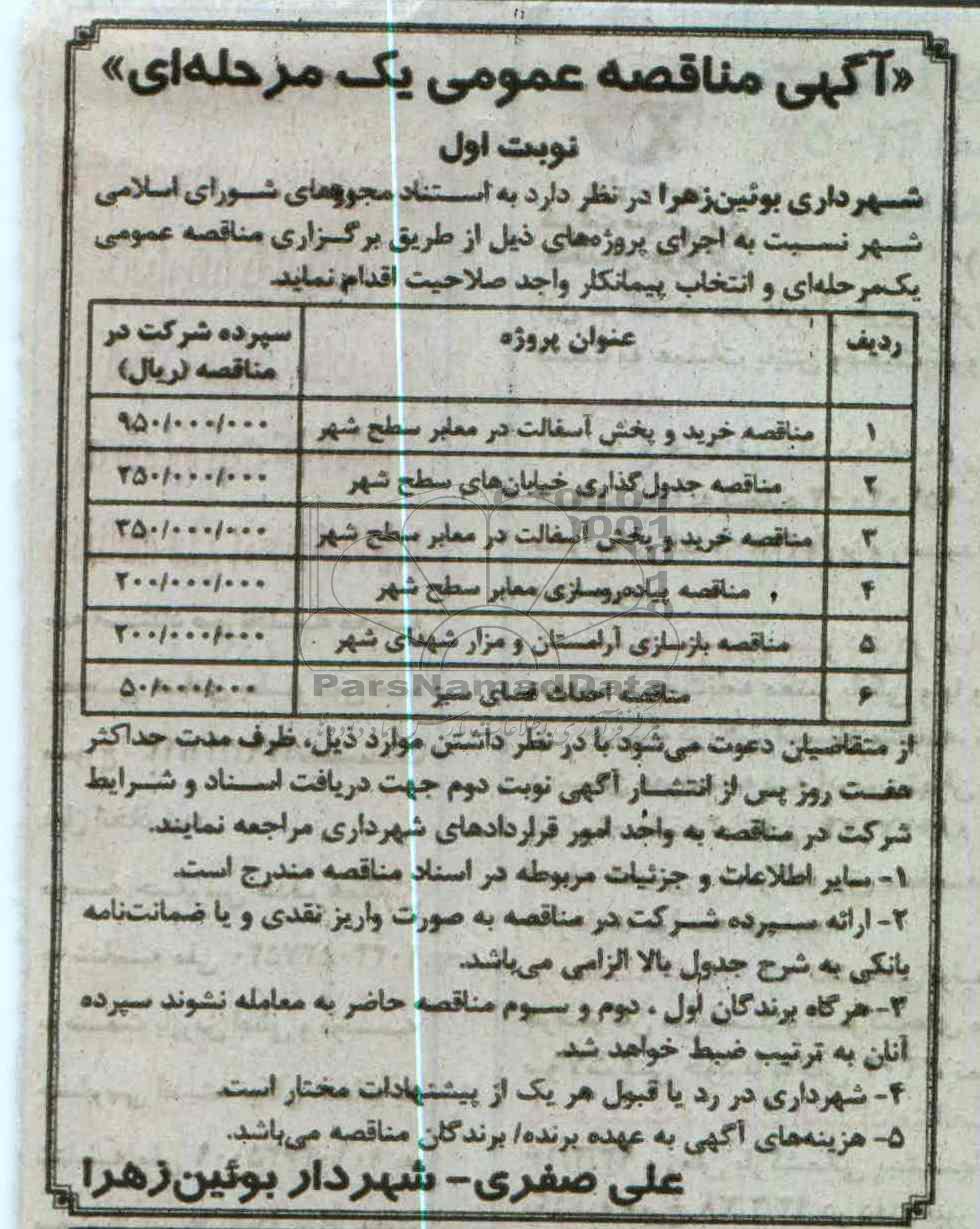 «آگهی مناقصه عمومی یک مرحله‌ای»
نوبت اول
شهرداری بوئین‌زهرا در نظر دارد به استناد مجوزهای شورای اسلامی
شهر نسبت به اجرای پروژه‌های ذیل از طریق برگزاری مناقصه عمومی
یک‌مرحله‌ای و انتخاب پیمانکار واجد صلاحیت اقدام نماید.
ردیف عنوان پروژه سپرده شرکت در
مناقصه (ریال)
۱ مناقصه خرید و پخش آسفالت در معابر سطح شهر ۹۵۰/۰۰۰/۰۰۰
۲ مناقصه جدول‌گذاری خیابان‌های سطح شهر ۲۵۰/۰۰۰/۰۰۰
۳ مناقصه خرید و پخش آسفالت در معابر سطح شهر ۳۵۰/۰۰۰/۰۰۰
۴ مناقصه پیاده‌روسازی معابر سطح شهر ۲۰۰/۰۰۰/۰۰۰
۵ مناقصه بازسازی آرامستان و مزار شهدای شهر ۲۰۰/۰۰۰/۰۰۰
۶ مناقصه احداث فضای سبز ۵۰/۰۰۰/۰۰۰
ParsNamadData
از متقاضیان دعوت می‌شود با در نظر داشتن موارد ذیل، ظرف مدت حداکثر
هفت روز پس از انتشار آگهی نوبت دوم جهت دریافت اسناد و شرایط
شرکت در مناقصه به واحد امور قراردادهای شهرداری مراجعه نمایند.
۱- سایر اطلاعات و جزئیات مربوطه در اسناد مناقصه مندرج است.
۲- ارائه سپرده شرکت در مناقصه به صورت واریز نقدی و یا ضمانت‌نامه
بانکی به شرح جدول بالا الزامی می‌باشد.
۳- هرگاه برندگان اول، دوم و سوم مناقصه حاضر به معامله نشوند سپرده
آنان به ترتیب ضبط خواهد شد.
۴- شهرداری در رد یا قبول هر یک از پیشنهادات مختار است.
۵- هزینه‌های آگهی به عهده برنده/ برندگان مناقصه می‌باشد.
علی صفری- شهردار بوئین‌زهرا